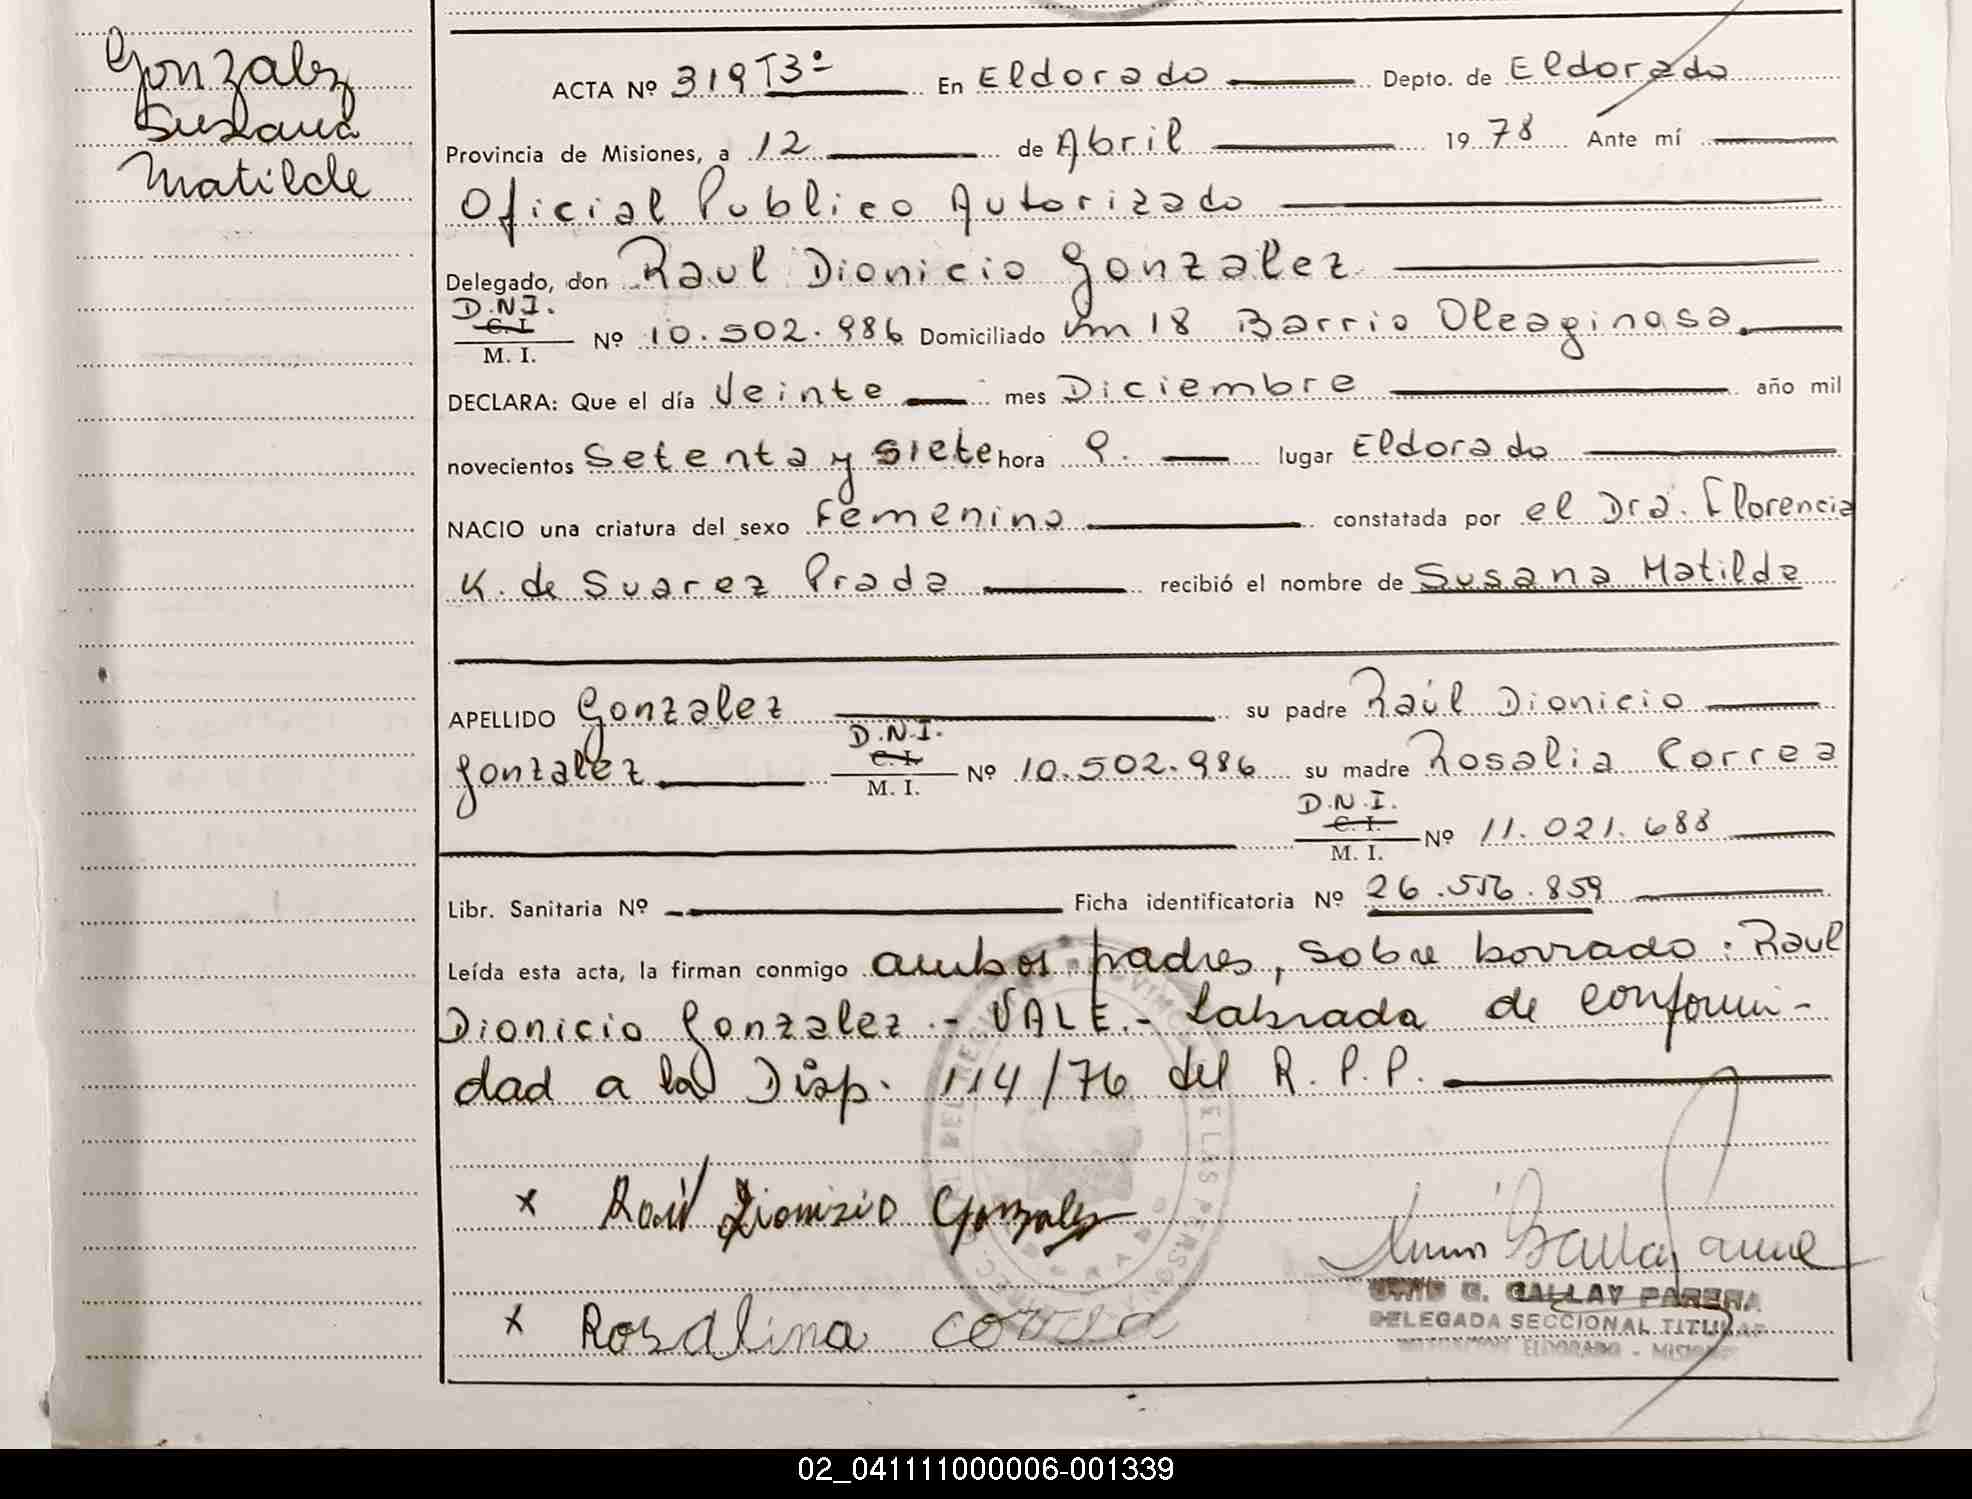 Gonzalez
Susana
Matilde
ACTA Nº 319 T3º En Eldorado Depto. de Eldorado
Provincia de Misiones, a 12 de Abril 1978 Ante mí
Oficial Publico Autorizado
Delegado, don Raul Dionicio Gonzalez
D.N.I.
C. I.
M. I. Nº 10.502.986 Domiciliado Km 18 Barrio Oleaginosa.
DECLARA: Que el día Veinte mes Diciembre año mil
novecientos Setenta y siete hora 9. lugar Eldorado
NACIO una criatura del sexo Femenino constatada por el Dra. Florencia
K. de Suarez Prada recibió el nombre de Susana Matilde
APELLIDO Gonzalez su padre Raúl Dionicio
Gonzalez D.N.I. C. I. M. I. Nº 10.502.986 su madre Rosalia Correa
D.N.I. C. I. M. I. Nº 11.021.688
Libr. Sanitaria Nº Ficha identificatoria Nº 26.556.859
Leída esta acta, la firman conmigo ambos padres, sobre borrado: Raul
Dionicio Gonzalez.- VALE.- Labrada de conformi-
dad a la Disp. 114/76 del R.P.P.
x Raúl Dionizio Gonzalez
x Rosalina correa
G. GALLAY PARERA
DELEGADA SECCIONAL TITULAR
DELEGACION ELDORADO - MISIONES
02_041111000006-001339